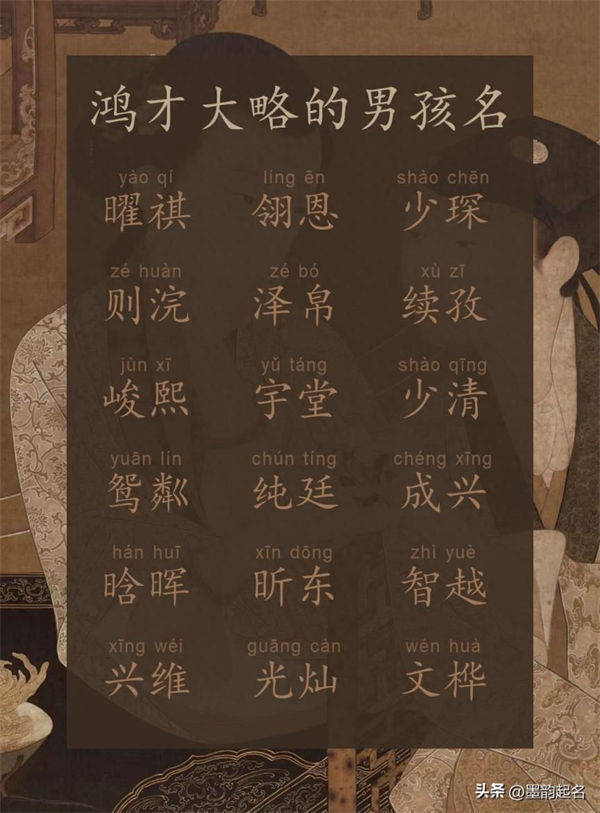 鸿才大略的男孩名
yào qí líng ēn shào chēn
曜祺 翎恩 少琛
zé huàn zé bó xù zī
则浣 泽帛 续孜
jùn xī yǔ táng shào qīng
峻熙 宇堂 少清
yuān lín chún tíng chéng xīng
鸳粼 纯廷 成兴
hán huī xīn dōng zhì yuè
晗晖 昕东 智越
xīng wéi guāng càn wén huà
兴维 光灿 文桦
头条 @墨韵起名